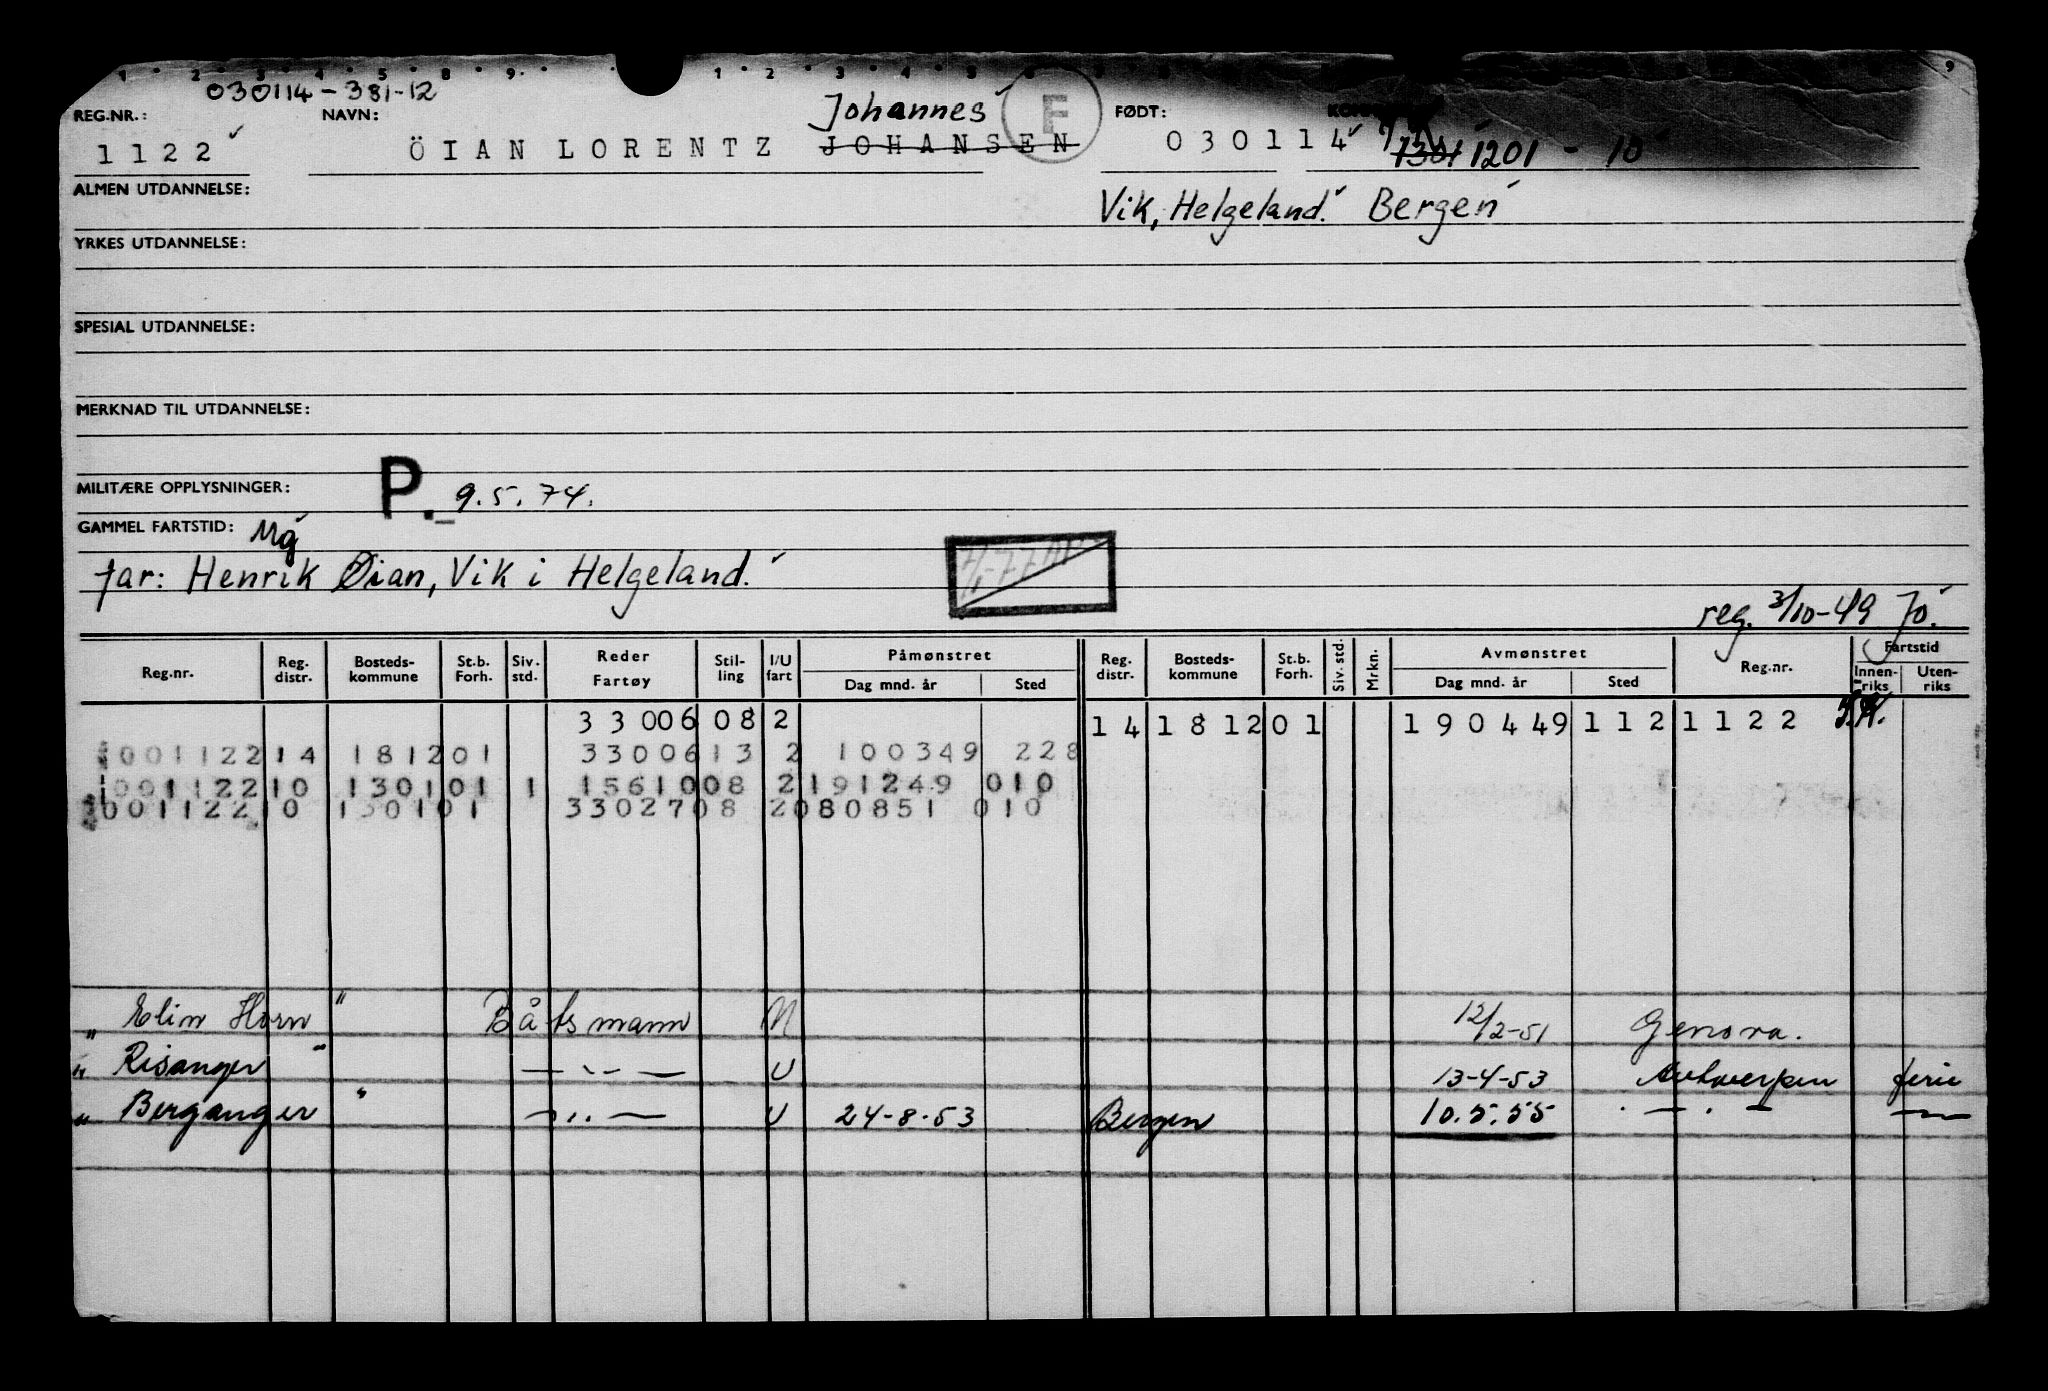 1 2 3 4 5 8 9 1 2 3 4 5 6 9
030114-381-12
REG.NR.: NAVN: Johannes F FØDT:
1122 ÖIAN LORENTZ JOHANSEN 030114 1301 1201 - 10
ALMEN UTDANNELSE: Vik, Helgeland. Bergen
YRKES UTDANNELSE:
SPESIAL UTDANNELSE:
MERKNAD TIL UTDANNELSE:
MILITÆRE OPPLYSNINGER: P. 9.5.74.
GAMMEL FARTSTID:
far: Henrik Øian, Vik i Helgeland.
reg. 3/10-49 Jo.
Reg.nr. Reg. distr. Bosteds-kommune St.b. Forh. Siv. std. Reder Fartøy Stil-ling I/U fart Påmønstret Dag mnd. år Sted Reg. distr. Bosteds-kommune St.b. Forh. Siv. std. Mrkn. Avmønstret Dag mnd. år Sted Reg.nr. Fartstid Innen-riks Uten-riks
33006 08 2 14 1812 01 190449 112 1122
001122 14 1812 01 33006 13 2 100349 228
001122 10 1301 01 1 15610 08 2 191249 010
001122 10 1301 01 33027 08 2 080851 010
" Elin Horn " Båtsmann 12/2-51 Genova.
" Risanger " — " — U 13-4-53 Antwerpen ferie
" Berganger " — " — U 24-8-53 Bergen 10.5.55 — " — — " —